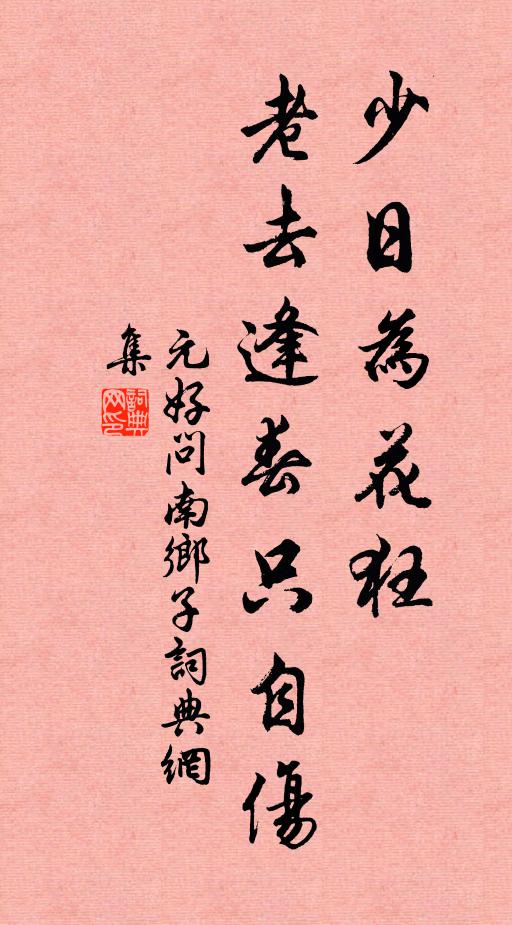 少日為花狂
老去逢春只自傷
元好問南鄉子詞典網
集
詞典
網印